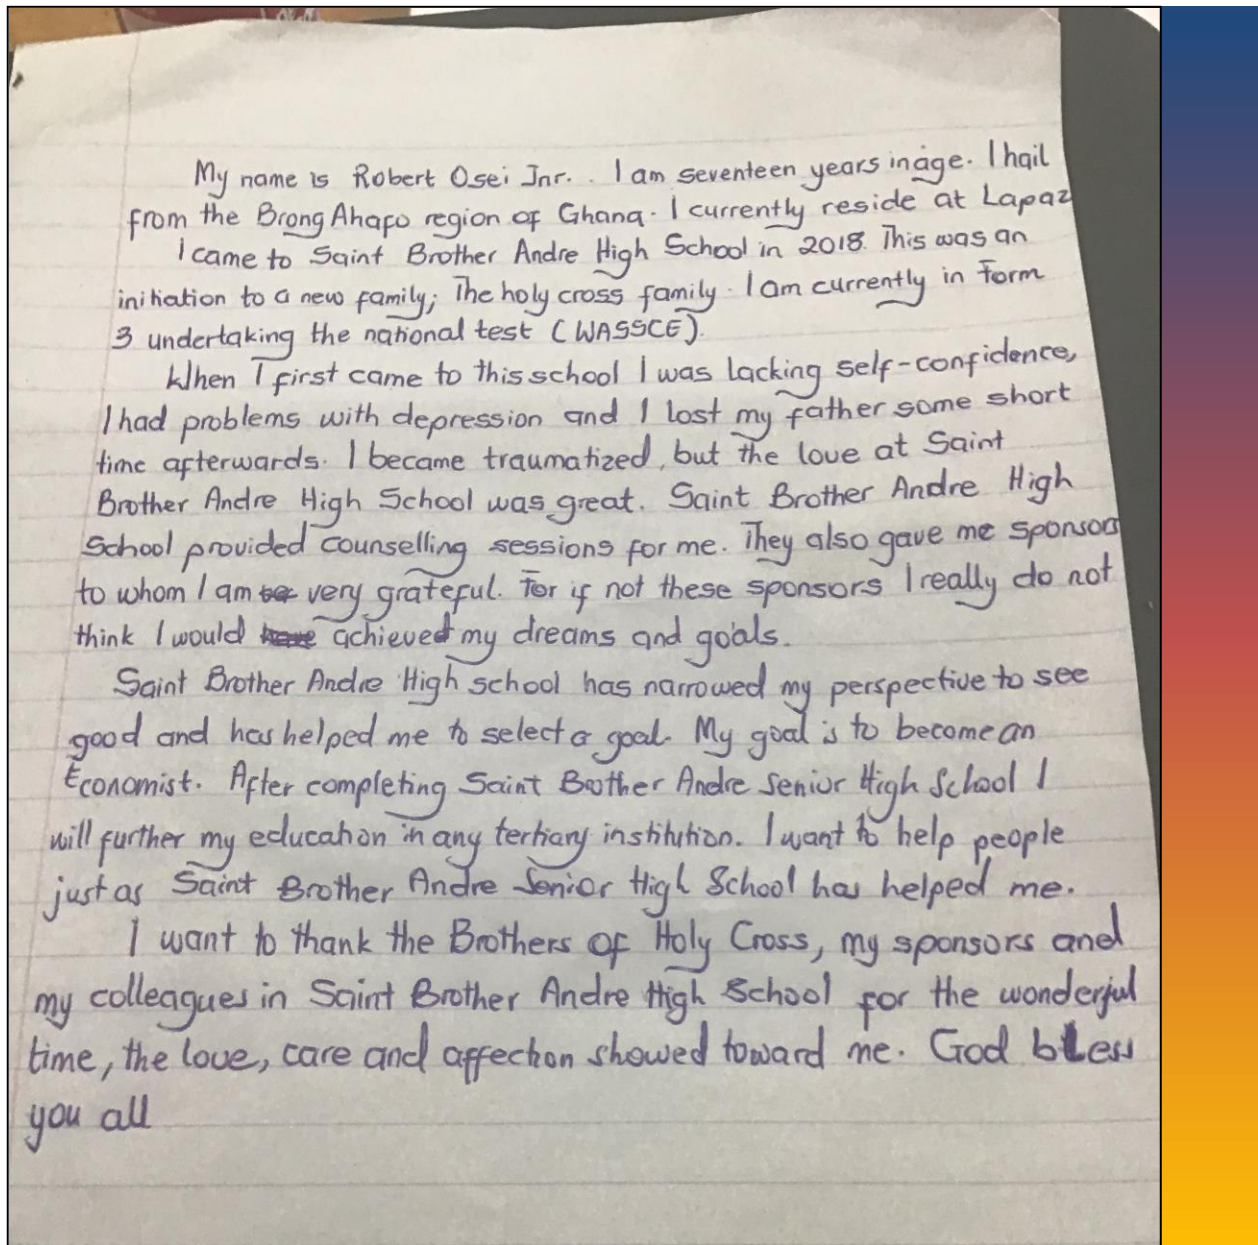 My name is Robert Osei Jnr.. I am seventeen years in age. I hail
from the Brong Ahafo region of Ghana. I currently reside at Lapaz
I came to Saint Brother Andre High School in 2018. This was an
initiation to a new family; The holy cross family. I am currently in Form
3 undertaking the national test (WASSCE).
When I first came to this school I was lacking self-confidence,
I had problems with depression and I lost my father some short
time afterwards. I became traumatized, but the love at Saint
Brother Andre High School was great. Saint Brother Andre High
School provided counselling sessions for me. They also gave me sponsors
to whom I am very grateful. For if not these sponsors I really do not
think I would achieved my dreams and goals.
Saint Brother Andre High school has narrowed my perspective to see
good and has helped me to select a goal. My goal is to become an
Economist. After completing Saint Brother Andre Senior High School I
will further my education in any tertiary institution. I want to help people
just as Saint Brother Andre Senior High School has helped me.
I want to thank the Brothers of Holy Cross, my sponsors and
my colleagues in Saint Brother Andre High School for the wonderful
time, the love, care and affection showed toward me. God bless
you all